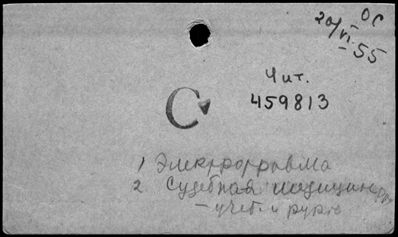 ОС
20/VI 55
Чит.
459813
С
1 Электротравма
2 Судебная медицина
– учеб. и рук.